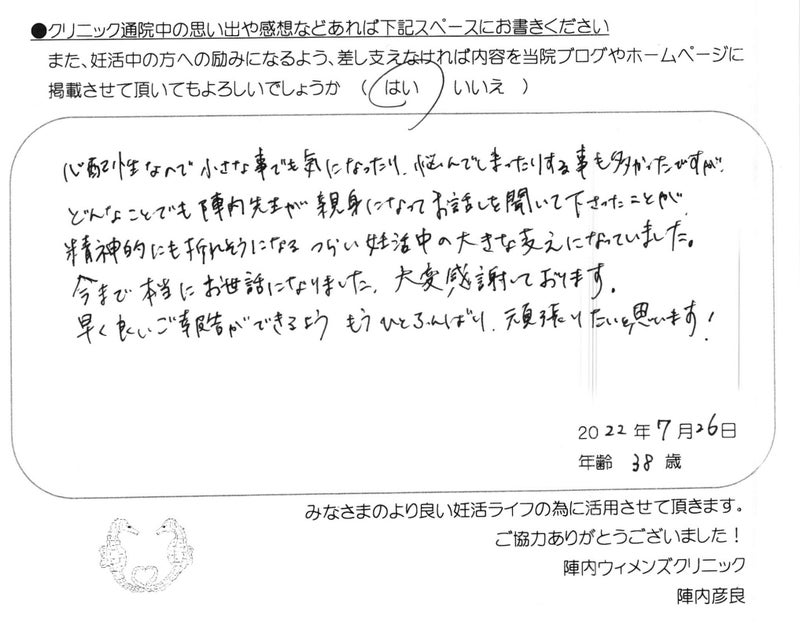 ●クリニック通院中の思い出や感想などあれば下記スペースにお書きください
また、妊活中の方への励みになるよう、差し支えなければ内容を当院ブログやホームページに
掲載させて頂いてもよろしいでしょうか ( はい いいえ )
心配性なので小さな事でも気になったり、悩んでしまったりする事も多かったですが、
どんなことでも陣内先生が親身になってお話しを聞いて下さったことが、
精神的にも折れそうになるつらい妊活中の大きな支えになっていました。
今まで本当にお世話になりました、大変感謝しております。
早く良いご報告ができるようもうひとふんばり、頑張りたいと思います!
2022年7月26日
年齢 38歳
みなさまのより良い妊活ライフの為に活用させて頂きます。
ご協力ありがとうございました!
陣内ウィメンズクリニック
陣内彦良